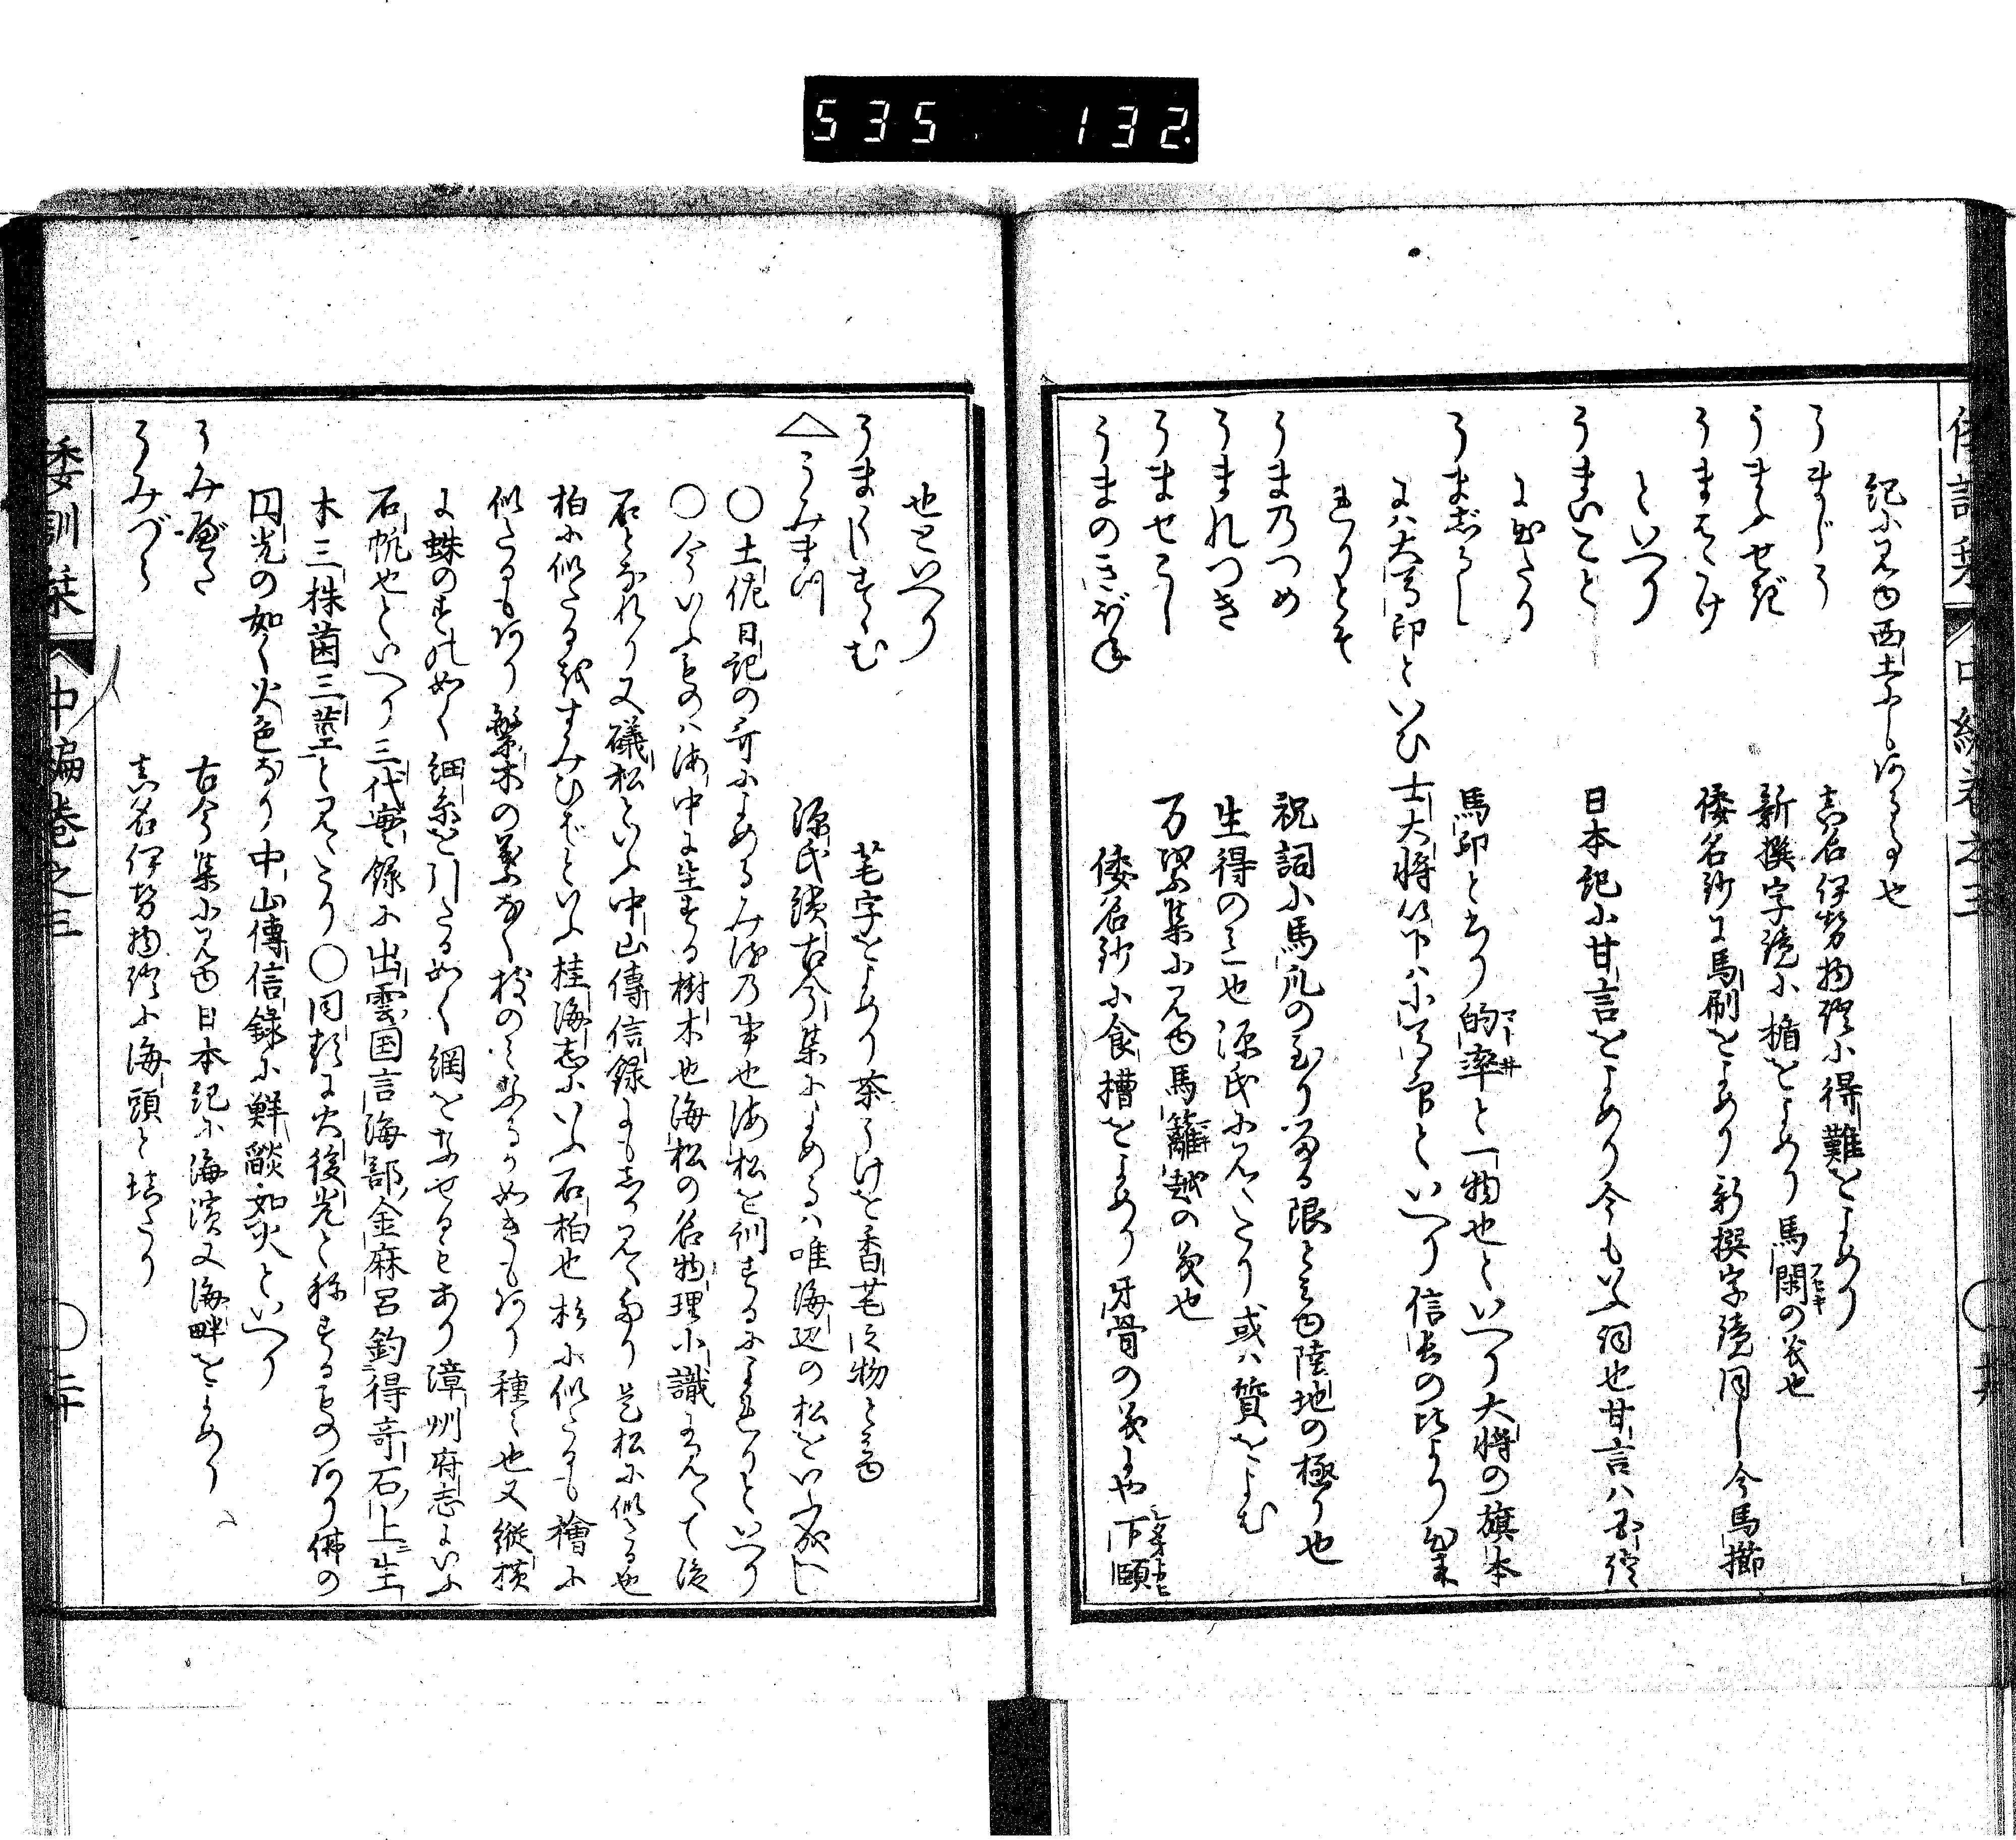 535 132
倭訓栞 中編巻之三
記に見ゆ西土にもある事也
うまじう 真名伊勢物語に得難をよめり
うまふせぎ 新撰字鏡に楯をよめり馬閑の義也
フセキ
うまはたけ 倭名鈔に馬刷をよめり新撰字鏡同し今馬櫛
といへり
うまいこと 日本記に甘言をよめり今もいふ詞也甘言ハ
に出たり
うまじるし 馬印と書り的率と一物也といへり大将の旗本
マト井
にハ大馬印といひ士大将以下ハ小馬印といへり信長の比より出来
れりとそ
うま乃つめ 祝詞に馬爪の至り留る限と見ゆ陸地の極り也
うまれつき 生得の事也源氏に見えたり或ハ質をよむ
うませこし 万葉集に見ゆ馬籬越の義也
うまのきぼね 倭名鈔に食槽をよめり牙骨の義にや下頤
也といへり
うまくすゝむ 芼字をよめり茶うけを香芼之物と見ゆ
源氏続古今集によめるハ唯海辺の松をいふ成へし
△うみまつ
○土佐日記の哥によめるみる乃事也海松を訓するによれりといへり
○今いふものハ海中に生する樹木也海松の名物理小識に見えて後
石となれり又礒松といふ中山傳信録にも志か見え松に似たる也
柏に似たる也すみひばといふ桂海志にいふ石柏也杉に似たるも檜に
似たるもあり繁木の葉なく枝のミなるか如きもあり種々也又縦横
に蛛のすの如く細糸を引たる如く網をなせるもあり漳州府志にいふ
石帆也といへり三代実録に出雲国言海部金麻呂釣得奇石上生
木三株茵三茎と見えたり○同類に火後光と称するものあり佛の
円光の如く火色なり中山傳信録に鮮燄如火といへり
うみべた 古今集に見ゆ日本記に海濱又海畔をよめり
うみづら 真名伊勢物語に海頭と填たり
倭訓栞 中編巻之三 二十